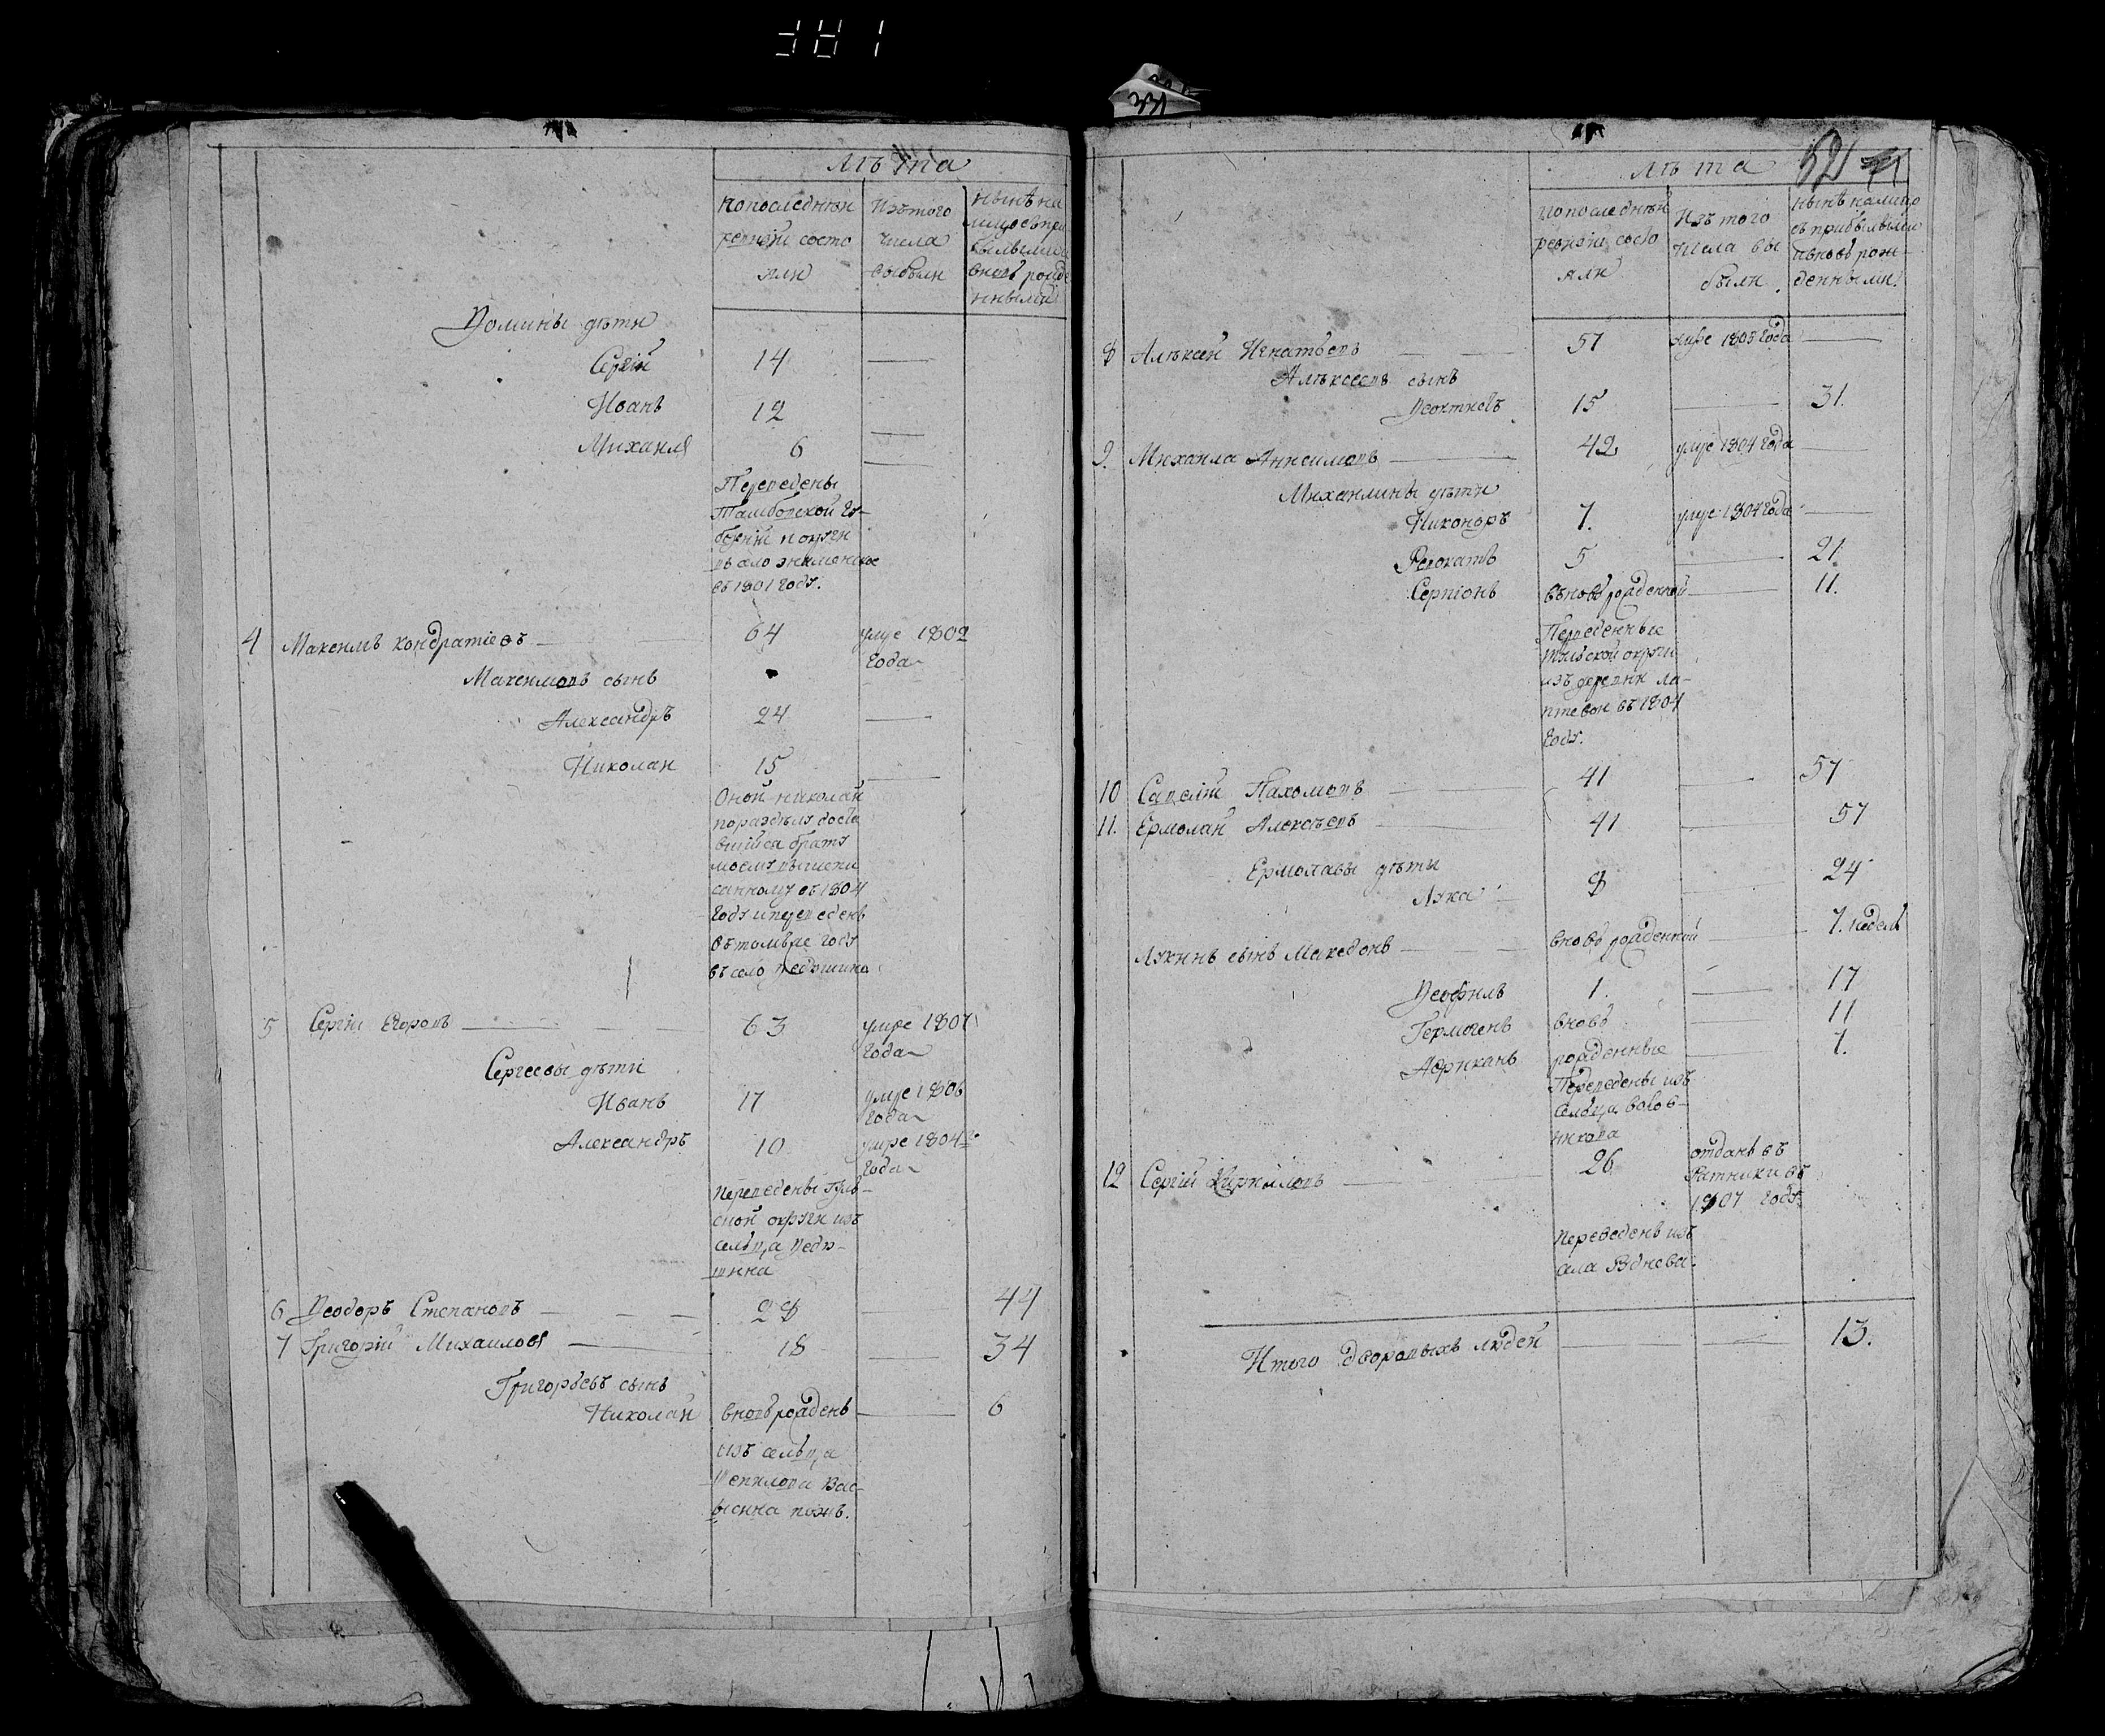 лѣта
по последнѣй
ревизіи состо
яли
изъ того
числа
выбыли
нынѣ на
лицо съ при
былыми и
вновь рожде
нными
Ѳомины дѣти
Сергій 14 —
Иванъ 12 —
Михаила 6 —
Переведены
Тамбовской гу-
берніи и округи
въ село знаменское
въ 1801 году.
4 Максимъ кондратіевъ — 64 умре 1802
года
Максимовъ сынъ
Александръ 24 —
Николаи 15 —
Оной николай
по разделу доста
вшійся брату
моему
году и переведенъ
въ томъ же году
въ село
5 Сергіи Егоровъ — 63 умре 1807
года
Сергеевы дѣти
Иванъ 17 умре 1806
года
Александръ 10 умре 1804го
года
переведены Туль-
ской округи изъ
сельца Ѳедя-
шина
6 Ѳеодоръ Степановъ — 28 — 44
7 Григорій Михаиловъ — 18 — 34
Григорьевъ сынъ
Николай вновь рожденъ — 6
изъ сельца
лѣта 521
по последнѣй
ревизіи состо
яли
изъ того
числа вы
были
нынѣ налицо
съ прибылыми
и вновь рож-
денными.
8 Алѣксей Игнатьевъ — 51 умре 1803 года —
Алѣксеевъ сынъ
Ѳеоктистъ 15 — 31.
9. Михаила Анисимовъ — 42 умре 1804 года —
Михаилины дѣти
Никоноръ 7. умре 1804 года —
5 — 21.
Серпіонъ вновь рожденной — 11.
Переведенные
Тульской округи
изъ деревни ла-
птевои въ 1804
году.
10 Савелій Пахомовъ — 41 — 57
11. Ермолай Алексѣевъ — 41 — 57
Ермолавы дѣти
Лука 8 — 24
Лукинъ сынъ Македонъ — вновь рожденной — 7. недель
Ѳеофилъ 1. — 17
Гермогенъ вновь — 11
Африканъ рожденные — 7.
Переведены изъ
сельца
12 Сергій Кириловъ — 26 отданъ въ
ратники въ
1807 году.
переведенъ изъ
села Руднева.
Итого дворовыхъ людей — — 13.